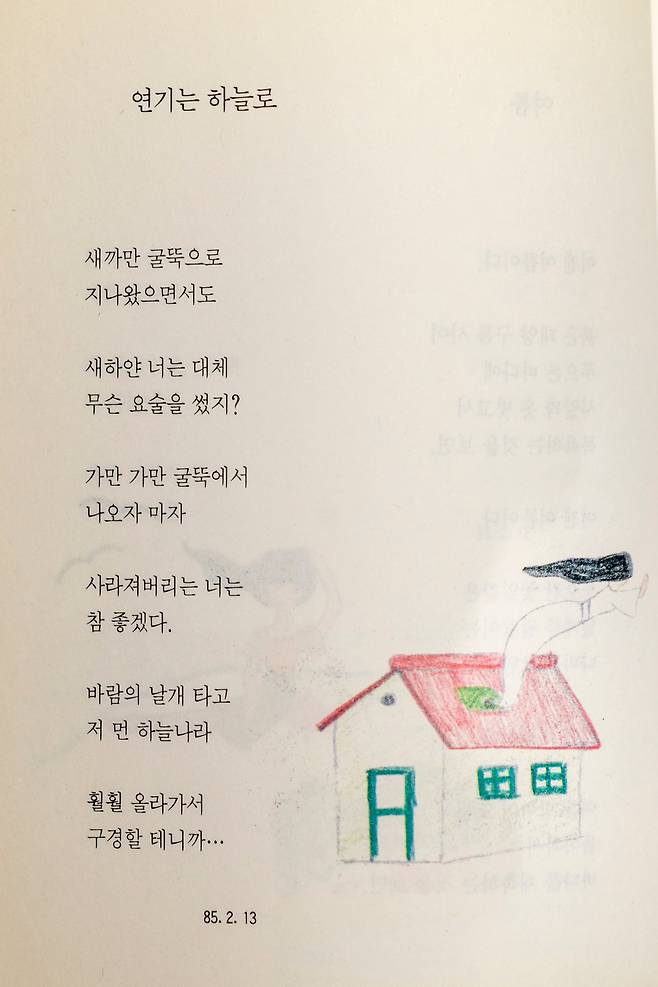 연기는 하늘로
새까만 굴뚝으로
지나왔으면서도
새하얀 너는 대체
무슨 요술을 썼지?
가만 가만 굴뚝에서
나오자 마자
사라져버리는 너는
참 좋겠다.
바람의 날개 타고
저 먼 하늘나라
훨훨 올라가서
구경할 테니까…
85. 2. 13